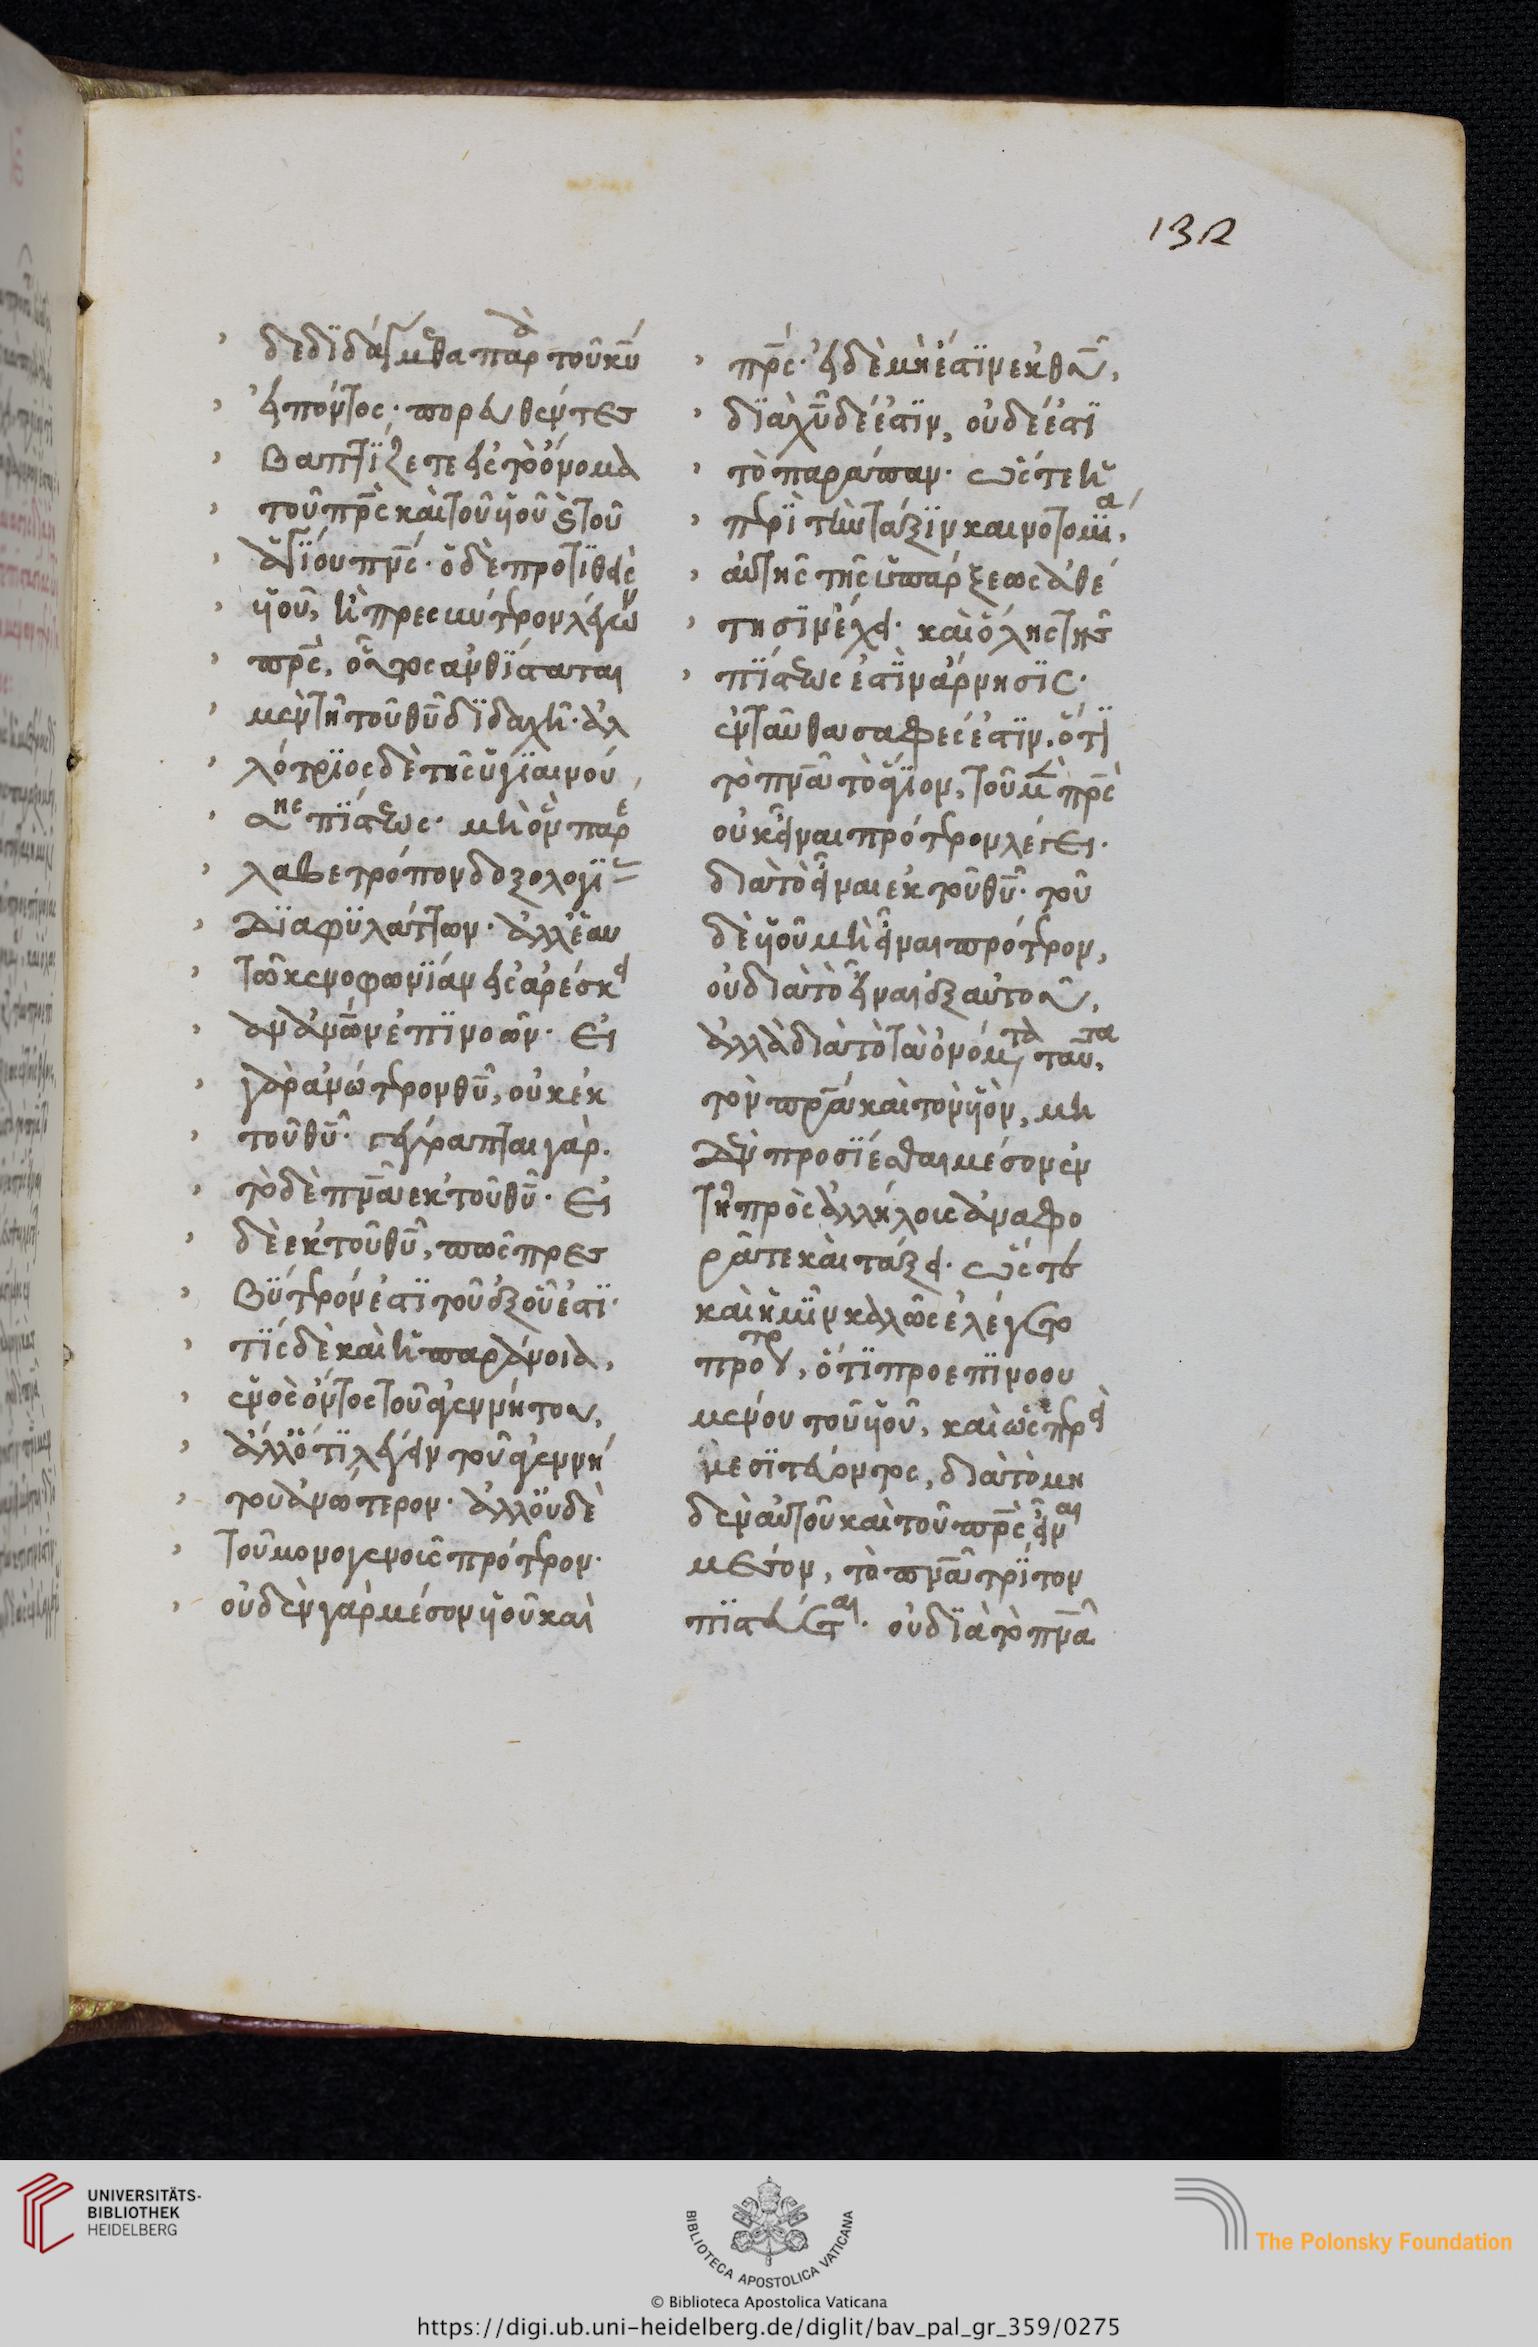 132
δεδιδάγμεθα παρὰ τοῦ κυ̅
εἰπόντος· πορευθέντες
βαπτίζετε εἰς τὸ ὄνομα
τοῦ πρ̅ς καὶ τοῦ υἱοῦ καὶ τοῦ
ἁγίου πν̅ς· ὁ δὲ προτιθεὶς
υἱοῦ, ἢ πρεσβύτερον λέγων
πρ̅ς, οὗτος ἀνθίσταται
μὲν τῆ τοῦ θυ̅ διδαχῆ· ἀλ
λότριος δὲ τῆς ὑγιαινού
σης πίστεως· μὴ ὃν παρέ
λαβε τρόπον δοξολογί
διαφυλάττων· ἀλλ' ἑαυ
τῶ κενοφωνίαν εἰς ἀρέσκει
αν ἀνω̅ν ἐπινοῶν· Εἰ
γὰρ ἀνώτερον θυ̅, οὐκ ἐκ
τοῦ θυ̅· γέγραπται γὰρ.
τὸ δὲ πν̅α ἐκ τοῦ θυ̅· Εἰ
δὲ ἐκ τοῦ θυ̅, πῶς πρεσ
βύτερόν ἐστι τοῦ ἐξ οὗ ἐστι·
τίς δὲ καὶ ἡ παράνοια,
ἑνὸς ὄντος τοῦ ἀγεννήτου,
ἄλλό τι λέγειν τοῦ ἀγεννή
του ἀνώτερον· ἀλλ' οὐδὲ
τοῦ μονογενοῦς πρότερον·
οὐδὲν γὰρ μέσον υἱοῦ καὶ
πρ̅ς· εἰ δὲ μή ἐστιν ἐκ θυ̅,
διὰ χυ̅ δέ ἐστιν, οὐδέ ἐστι
τὸ παράπαν· ὥστε ἡ
περὶ τὴν τάξιν καινοτομία,
αὐτῆς τῆς ὑπάρξεως ἀθέ
τησιν ἔχει· καὶ ὅλης τῆς
πίστεως ἐστὶν ἄρνησις·
ἐνταῦθα σαφές ἐστιν. ὅτι
τὸ πν̅α τὸ ἅγιον, τοῦ μὲν πρ̅ς
οὐκ εἶναι πρότερον λέγει·
διὰ τὸ εἶναι ἐκ τοῦ θυ̅· τοῦ
δὲ υἱοῦ μὴ εἶναι πρότερον,
οὐ διὰ τὸ εἶναι ἐξ αὐτοῦ,
ἀλλὰ διὰ τὸ τὰ ὀνόματα ταῦτα,
τὸν πρ̅α καὶ τὸν υἱὸν, μη
δὲν προσίεσθαι μέσον ἐν
τῆ πρὸς ἀλλήλοις ἀναφο
ρᾶ τε καὶ τάξει· ὥστε
καὶ ἡμῖν καλῶς ἐλέγετο
πρὸ τούτου, ὅτι προεπινοου
μένου τοῦ υἱοῦ, καὶ ὡσπερεὶ
μεσιτεύοντος, διὰ τὸ μη
δὲν αὐτοῦ καὶ τοῦ πρ̅ς εἶναι
μέσον, τὸ πν̅α τρίτον
πιστεύεται· οὐ διὰ τὸ πν̅α
UNIVERSITÄTS-
BIBLIOTHEK
HEIDELBERG
BIBLIOTECA APOSTOLICA VATICANA
The Polonsky Foundation
© Biblioteca Apostolica Vaticana
https://digi.ub.uni-heidelberg.de/diglit/bav_pal_gr_359/0275